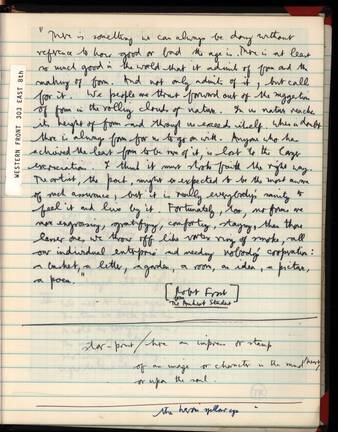 "There is something we can always be doing without
reference to how good or bad the age is. There is at least
so much good in the world that it admits of form and the
making of form. And not only admits of it, but calls
for it. We people are thrust forward out of the suggestions
of form in the rolling clouds of nature. In us nature reaches
its height of form and through us exceeds itself. When in doubt
there is always form for us to go on with. Anyone who has
achieved the least form to be sure of it is lost to the larger
excruciations. I think it must stroke faith the right way.
The artist, the poet, might be expected to be the most aware
of such assurance, but it is really everybody's sanity to
feel it and live by it. Fortunately, too, no forms are
more engrossing, gratifying, comforting, staying, than those
lesser ones we throw off like vortex rings of smoke, all
our individual enterprise and needing nobody's cooperation:
a basket, a letter, a garden, a room, an idea, a picture,
a poem."
[Robert Frost
The Amherst Student]
/ an impress or stamp
of an image or character in the mind/heart
or upon the soul.
the heron yellow eye
WESTERN FRONT 303 EAST 8th